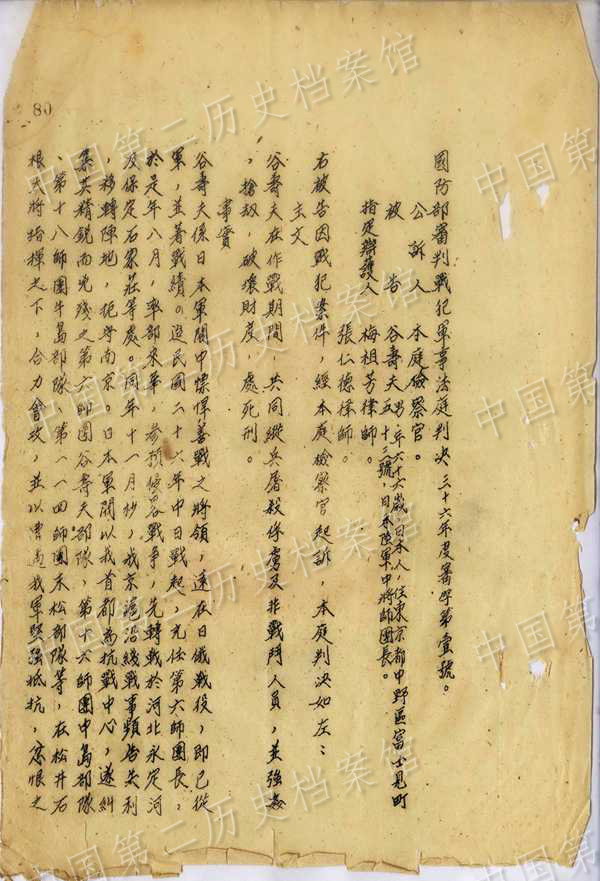 國防部審判戰犯軍事法庭判決 三十六年度審字第壹號。
公訴人 本庭檢察官。
被告 谷壽夫 男,年六十六歲,日本人,住東京都中野區富士見町
五十三號,日本陸軍中將師團長。
指定辯護人 梅祖芳律師。
張仁德律師。
右被告因戰犯案件,經本庭檢察官起訴,本庭判決如左:
主文
谷壽夫在作戰期間,共同縱兵屠殺俘虜及非戰鬥人員,並強姦
,搶劫,破壞財產,處死刑。
事實
谷壽夫係日本軍閥中慓悍善戰之將領,遠在日俄戰役,即已從
軍,並著戰績。迨民國二十六年中日戰起,充任第六師團長,
於是年八月,率部來華,參預侵略戰爭,先轉戰於河北永定河
及保定石家莊等處。同年十一月杪,我京滬沿綫戰事頻告失利
,移轉陣地,扼守南京。日本軍閥以我首都為抗戰中心,遂糾
集其精銳而兇殘之第六師團谷壽夫部隊,第十六師團中島部隊
、第十八師團牛島部隊、第一一四師團末松部隊等,在松井石
根大將指揮之下,合力會攻,並以遭遇我軍堅強抵抗,忿恨之
80
中国第二历史档案馆
中国第二历史档案馆
中国第二历史档案馆
中国第
中国第
中国第
中国第